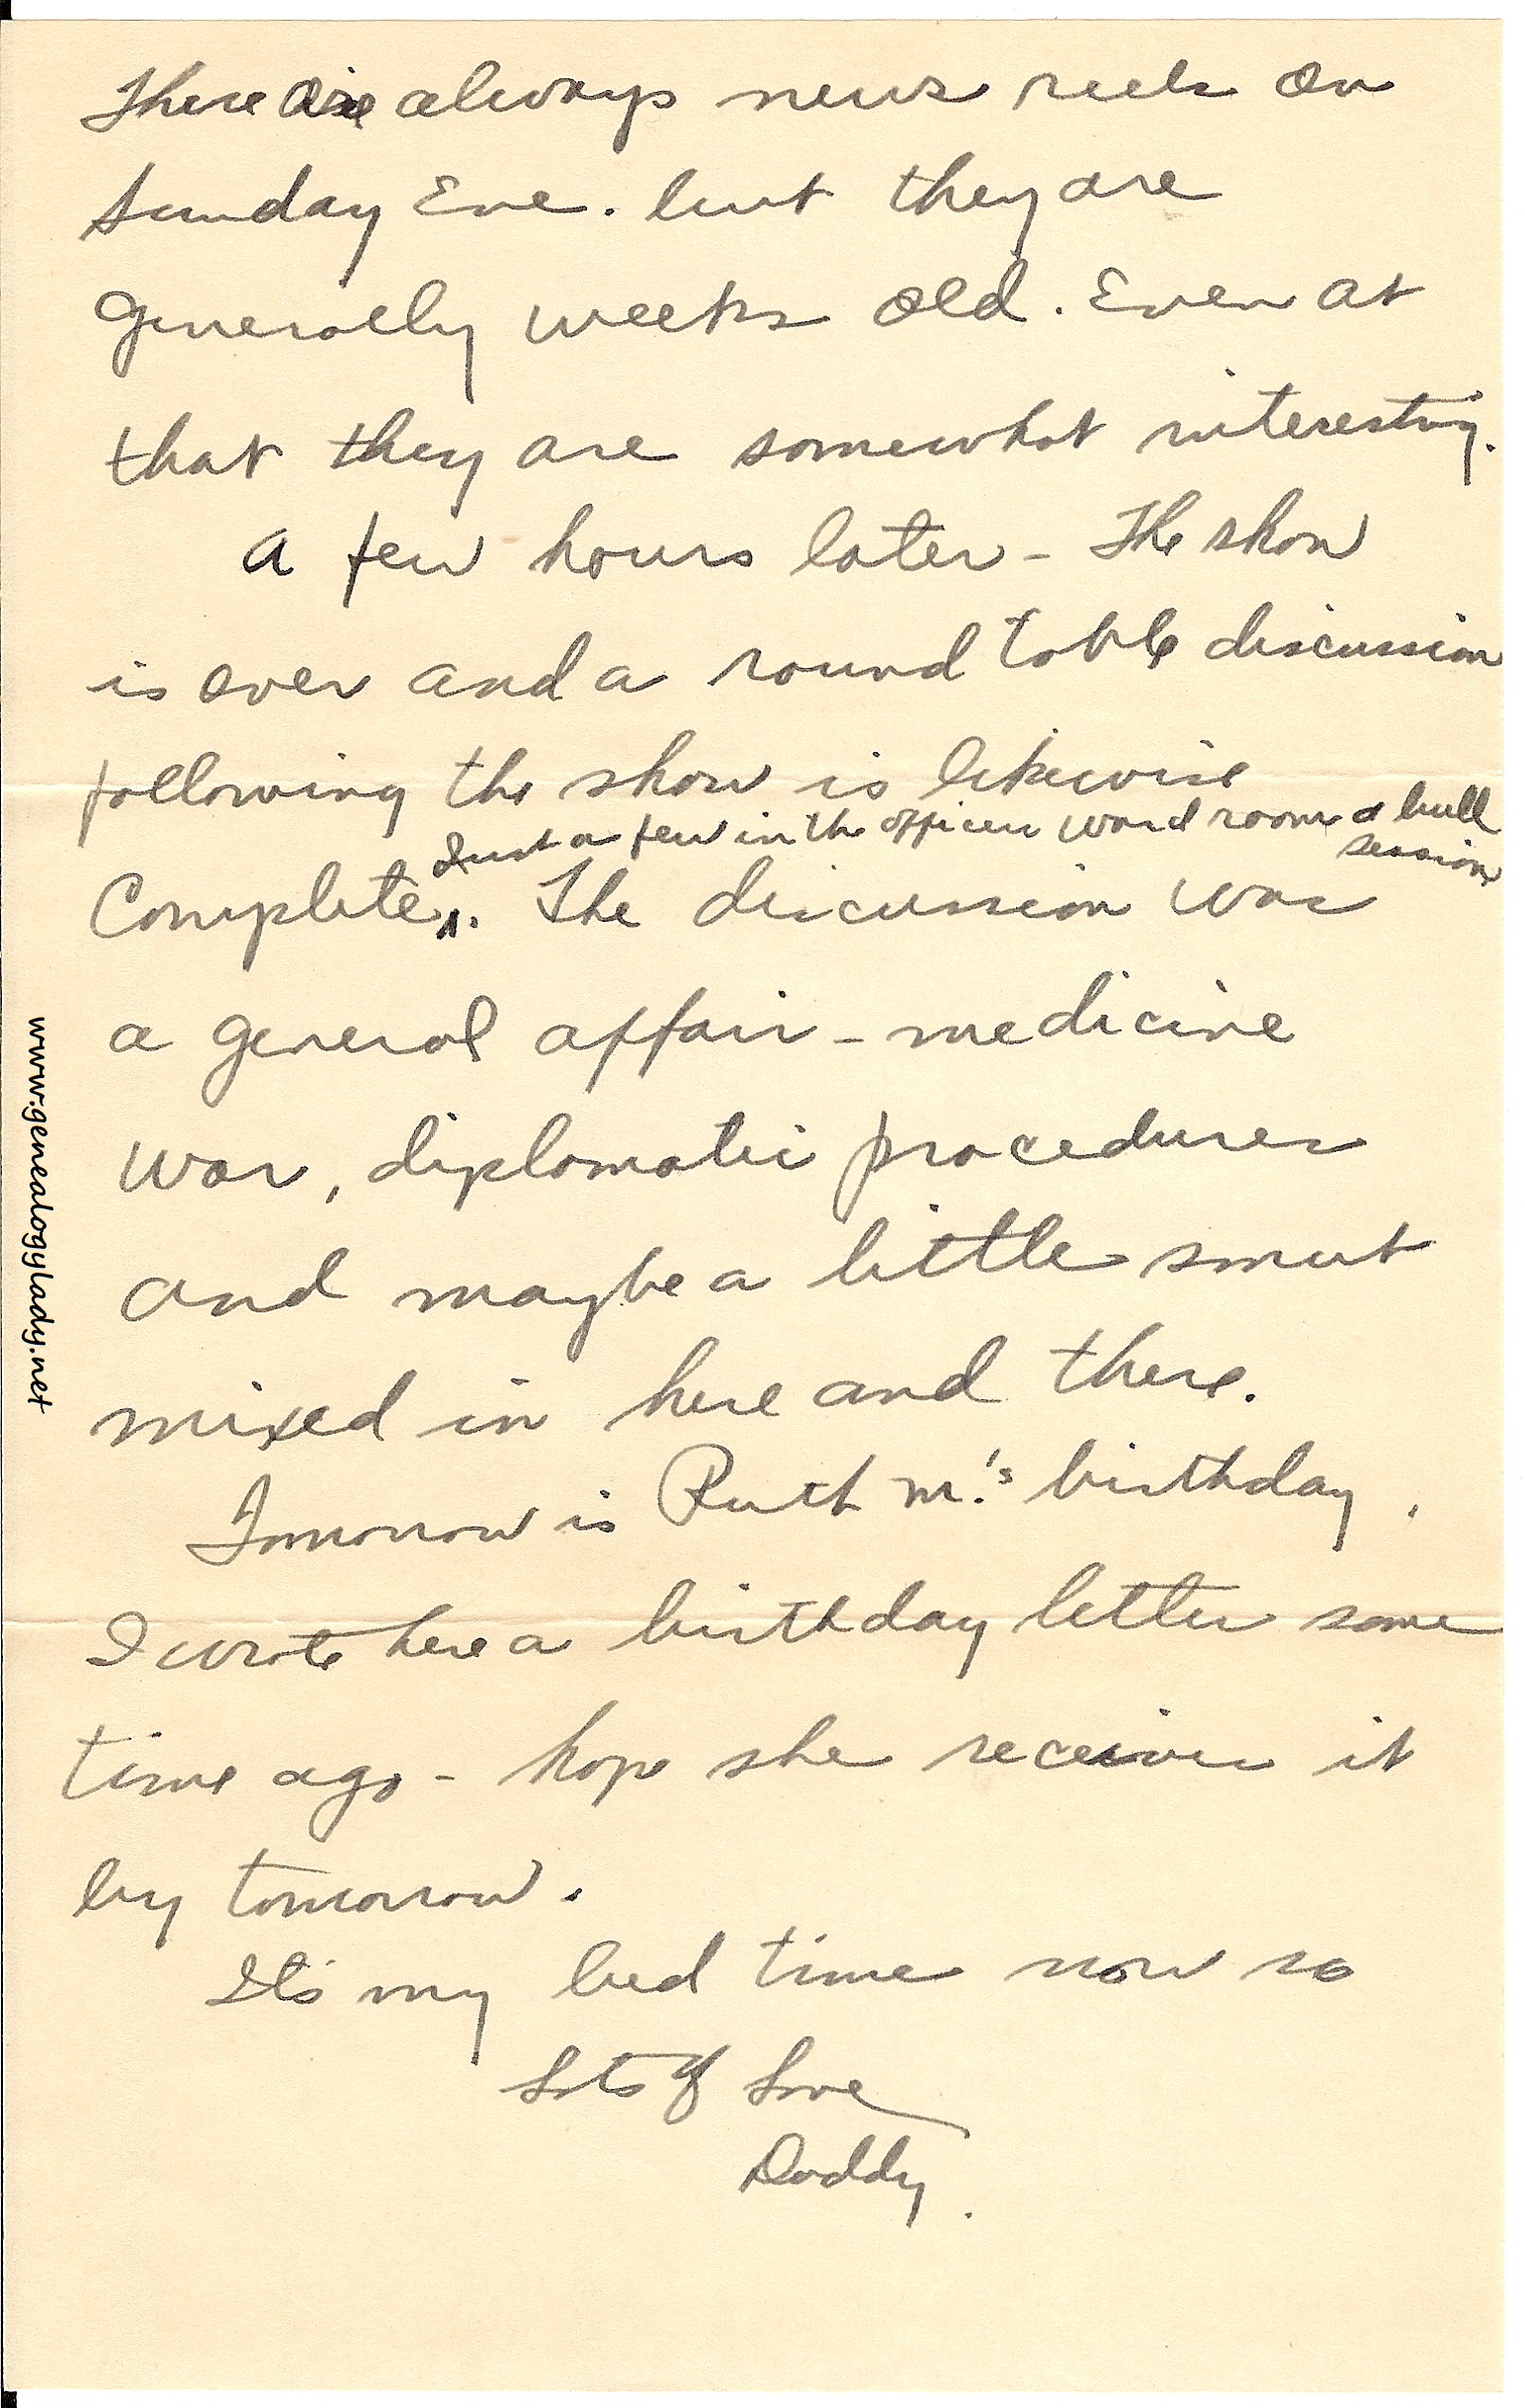 There are always news reels on
Sunday Eve. but they are
generally weeks old. Even at
that they are somewhat interesting.
A few hours later - The show
is over and a round table discussion
following the show is likewise
Just a few in the officers ward room a bull
session
Complete^. The discussion was
a general affair - medicine
war, diplomatic procedures
and maybe a little smut
mixed in here and there.
Tomorrow is Ruth M.'s birthday.
I wrote here a birthday letter some
time ago - hope she receives it
by tomorrow.
It's my bed time now so
Lots of Love
Daddy.
www.genealogylady.net